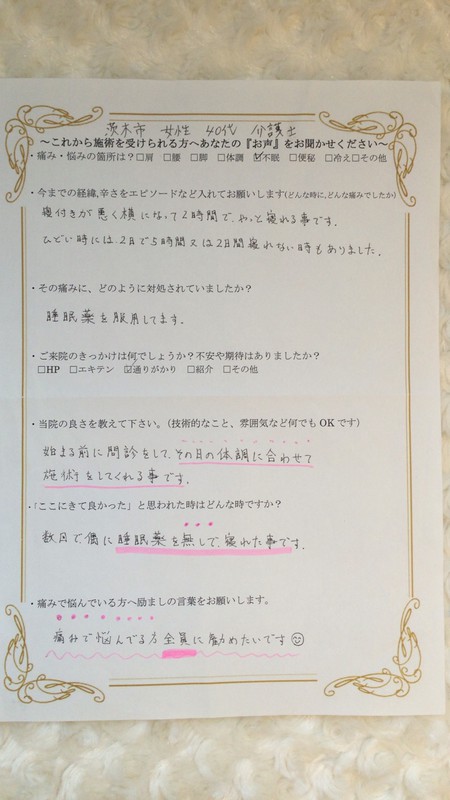 茨木市 女性 40代 介護士
～これから施術を受けられる方へあなたの『お声』をお聞かせください～
・痛み・悩みの箇所は？□肩 □腰 □脚 □体調 ☑不眠 □便秘 □冷え□その他
・今までの経緯,辛さをエピソードなど入れてお願いします(どんな時に,どんな痛みでしたか)
寝付きが悪く横になって2時間で、やっと寝れる事です。
ひどい時には、2日で5時間又は2日間寝れない時もありました。
・その痛みに、どのように対処されていましたか？
睡眠薬を服用してます。
・ご来院のきっかけは何でしょうか？不安や期待はありましたか？
□HP □エキテン ☑通りがかり □紹介 □その他
・当院の良さを教えて下さい。（技術的なこと、雰囲気など何でもOKです）
始まる前に問診をして、その日の体調に合わせて
施術をしてくれる事です。
・「ここにきて良かった」と思われた時はどんな時ですか？
数回で価に睡眠薬を無しで、寝れた事です。
・痛みで悩んでいる方へ励ましの言葉をお願いします。
痛みで悩んでる方全員に勧めたいです☺